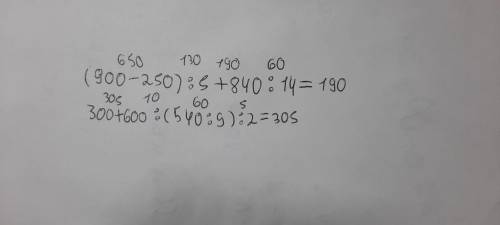 650 130 190 60
(900-250):5+840:14=190
305 10 60 5
300+600:(540:9):2=305